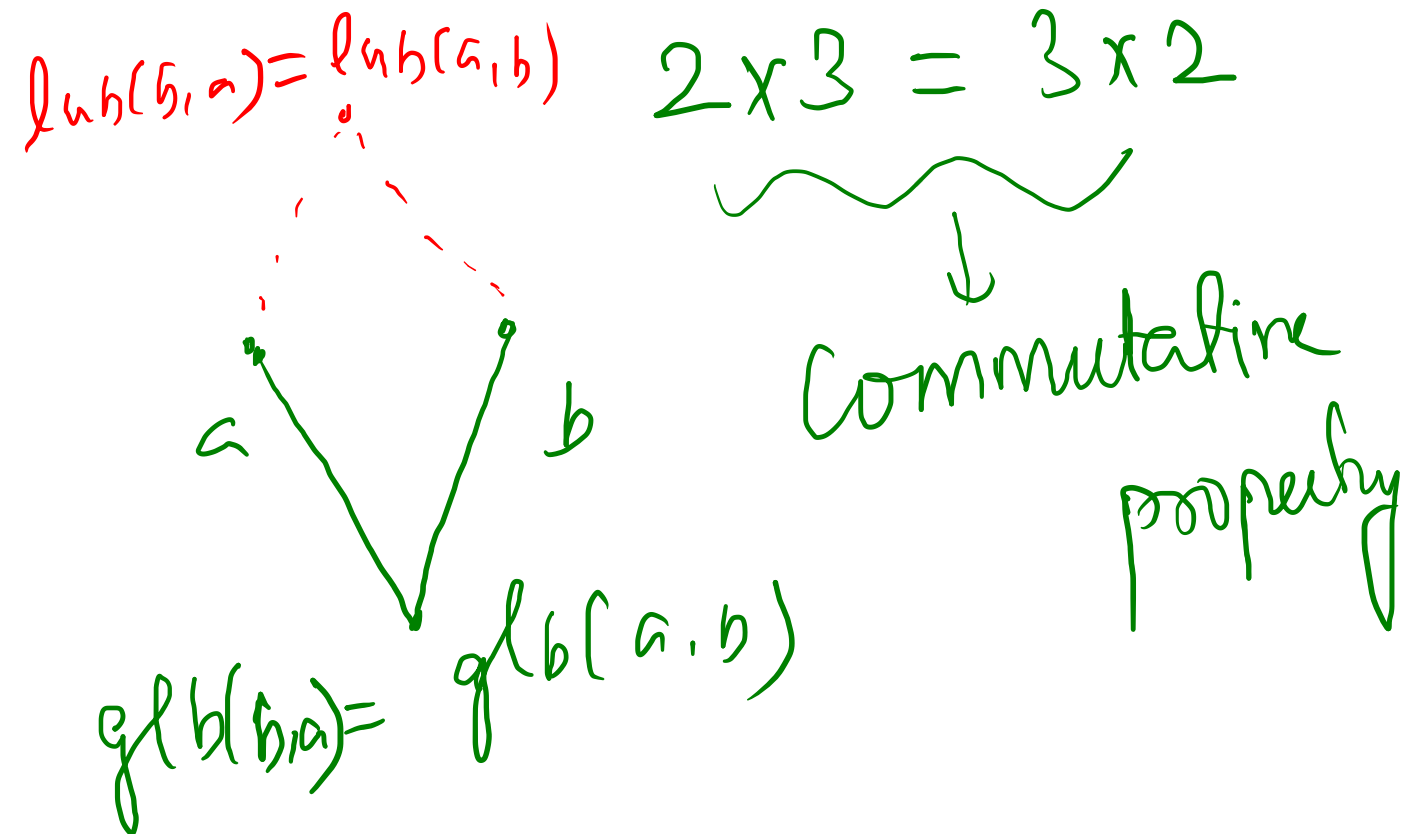 lub(b,a) = lub(a,b)
2 x 3 = 3 x 2
a
b
Commutative
property
glb(b,a) = glb(a,b)